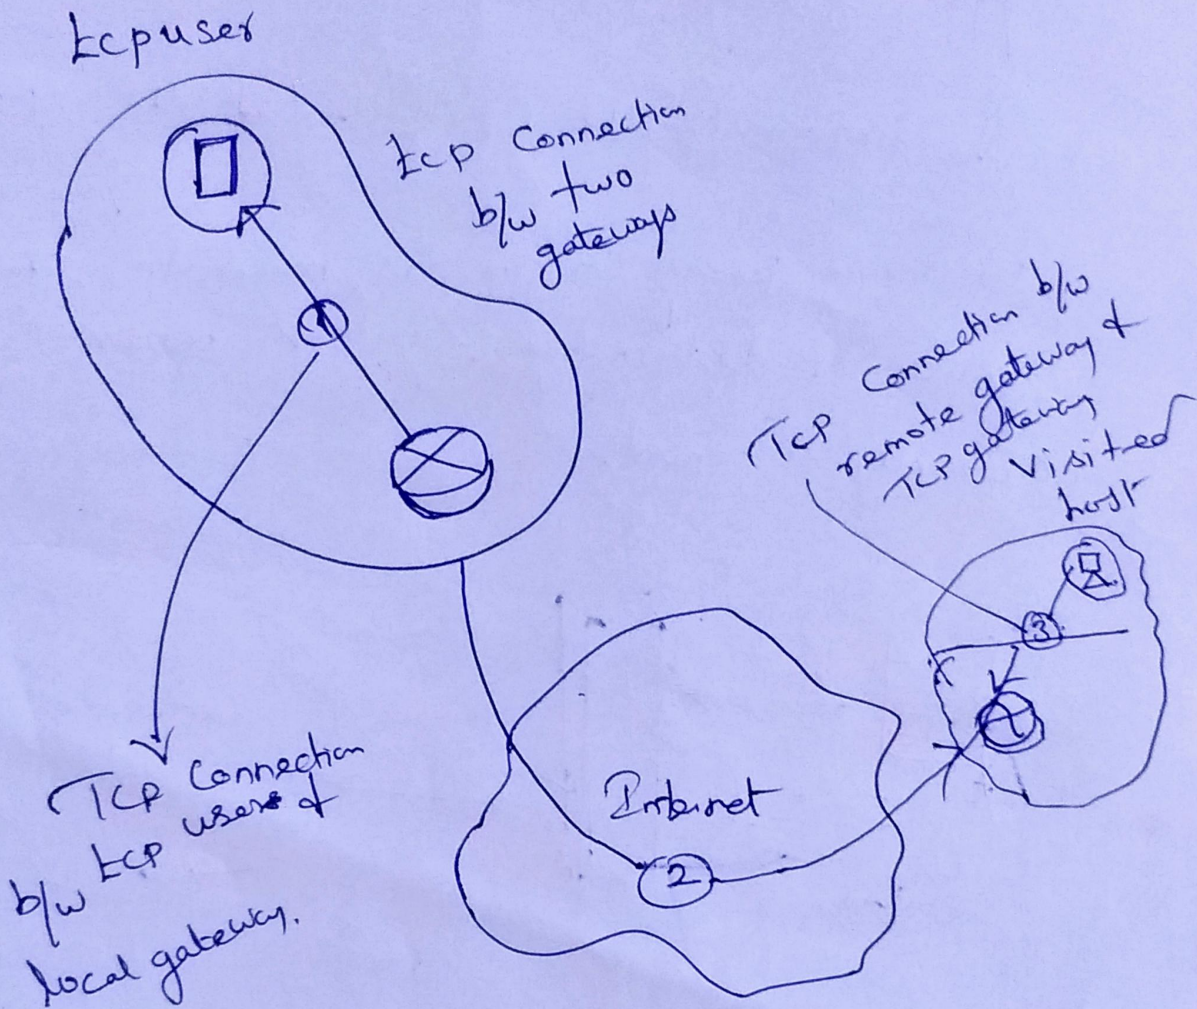 tcpuser
tcp Connection
b/w two
gateways
TCP Connection b/w
remote gateway &
TCP gateway
visited
host
1
3
Internet
2
TCP Connection
b/w tcp users &
local gateway.